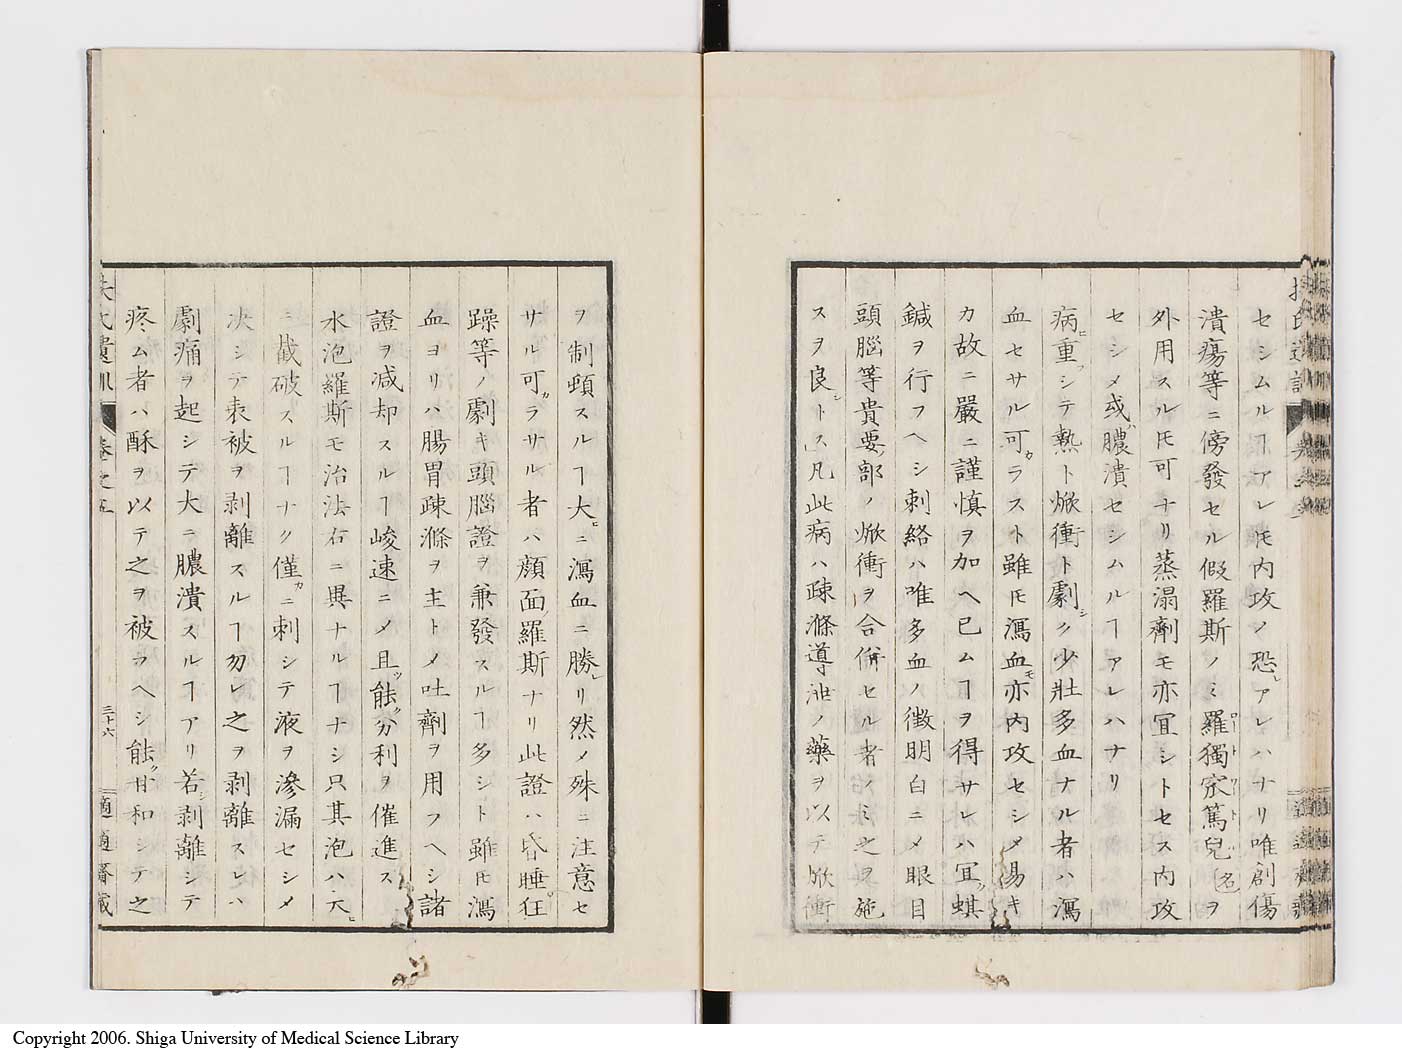 セシムルヿアレ𪜈内攻ノ恐レアレハナリ唯創傷
潰瘍等ニ傍發セル假羅斯ノミ羅獨㝡篤兒名ヲ
外用スル𪜈可ナリ蒸溻劑モ亦冝シトセス内攻
セシメ或ハ膿潰セシムルヿアレハナリ
病重ニシテ熱ト焮衝ト劇シク少壯多血ナル者ハ瀉
血セサル可カラスト雖𪜈瀉血モ亦内攻セシメ易キ
カ故ニ嚴ニ謹慎ヲ加ヘ已ムヿヲ得サレハ冝ク蜞
鍼ヲ行フヘシ刺絡ハ唯多血ノ徴明白ニメ眼目
頭腦等貴要部ノ焮衝ヲ合併セル者ノミ之ヲ施
スヲ良シトス凡此病ハ疎滌導泄ノ藥ヲ以テ焮衝
ヲ制頓スルヿ大ニ瀉血ニ勝レリ然メ殊ニ注意セ
サル可カラサル者ハ顔面羅斯ナリ此證ハ昏睡狂
躁等ノ劇キ頭腦證ヲ兼發スルヿ多シト雖𪜈瀉
血ヨリハ腸胃疎滌ヲ主トメ吐劑ヲ用フヘシ諸
證ヲ減却スルヿ峻速ニメ且ツ能ク分利ヲ催進ス
水泡羅斯モ治法右ニ異ナルヿナシ只其泡ハ大
ニ截破スルヿナク僅カニ刺シテ液ヲ滲漏セシメ
决シテ表被ヲ剥離スルヿ勿レ之ヲ剥離スレハ
劇痛ヲ起シテ大ニ膿潰スルヿアリ若シ剥離シテ
疼ム者ハ酥ヲ以テ之ヲ被フヘシ能ク甘和シテ之
扶氏遺訓 卷之五
三十六
適適齋藏
Copyright 2006. Shiga University of Medical Science Library